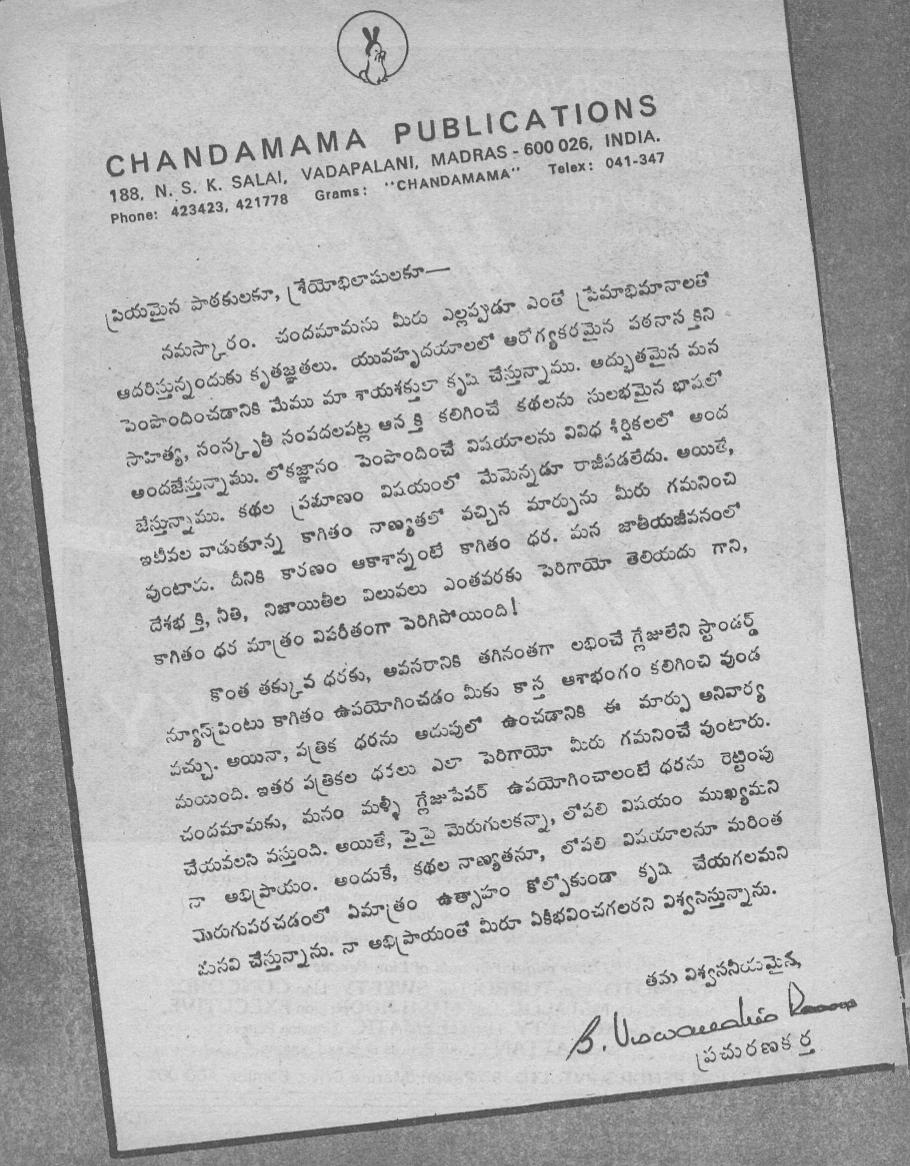 CHANDAMAMA PUBLICATIONS
188, N. S. K. SALAI, VADAPALANI, MADRAS - 600 026, INDIA.
Phone: 423423, 421778 Grams: "CHANDAMAMA" Telex: 041-347
ప్రియమైన పాఠకులకూ, శ్రేయోభిలాషులకూ—
నమస్కారం. చందమామను మీరు ఎల్లప్పుడూ ఎంతో ప్రేమాభిమానాలతో
ఆదరిస్తున్నందుకు కృతజ్ఞతలు. యువహృదయాలలో ఆరోగ్యకరమైన పఠనాసక్తిని
పెంపొందించడానికి మేము మా శాయశక్తులా కృషి చేస్తున్నాము. అద్భుతమైన మన
సాహిత్య, సంస్కృతీ సంపదలపట్ల ఆసక్తి కలిగించే కథలను సులభమైన భాషలో
అందజేస్తున్నాము. లోకజ్ఞానం పెంపొందించే విషయాలను వివిధ శీర్షికలలో అంద
జేస్తున్నాము. కథల ప్రమాణం విషయంలో మేమెన్నడూ రాజీపడలేదు. అయితే,
ఇటీవల వాడుతూన్న కాగితం నాణ్యతలో వచ్చిన మార్పును మీరు గమనించి
వుంటారు. దీనికి కారణం ఆకాశాన్నంటే కాగితం ధర. మన జాతీయజీవనంలో
దేశభక్తి, నీతి, నిజాయితీల విలువలు ఎంతవరకు పెరిగాయో తెలియదు గాని,
కాగితం ధర మాత్రం విపరీతంగా పెరిగిపోయింది!
కొంత తక్కువ ధరకు, అవసరానికి తగినంతగా లభించే గ్లేజులేని స్టాండర్డ్
న్యూస్‌ప్రింటు కాగితం ఉపయోగించడం మీకు కాస్త ఆశాభంగం కలిగించి వుండ
వచ్చు. అయినా, పత్రిక ధరను అదుపులో ఉంచడానికి ఈ మార్పు అనివార్య
మయింది. ఇతర పత్రికల ధరలు ఎలా పెరిగాయో మీరు గమనించే వుంటారు.
చందమామకు, మనం మళ్ళీ గ్లేజుపేపర్ ఉపయోగించాలంటే ధరను రెట్టింపు
చేయవలసి వస్తుంది. అయితే, పైపై మెరుగులకన్నా, లోపలి విషయం ముఖ్యమని
నా అభిప్రాయం. అందుకే, కథల నాణ్యతనూ, లోపలి విషయాలనూ మరింత
మెరుగుపరచడంలో ఏమాత్రం ఉత్సాహం కోల్పోకుండా కృషి చేయగలమని
మనవి చేస్తున్నాను. నా అభిప్రాయంతో మీరూ ఏకీభవించగలరని విశ్వసిస్తున్నాను.
తమ విశ్వసనీయమైన,
B. Viswanatha
ప్రచురణకర్త